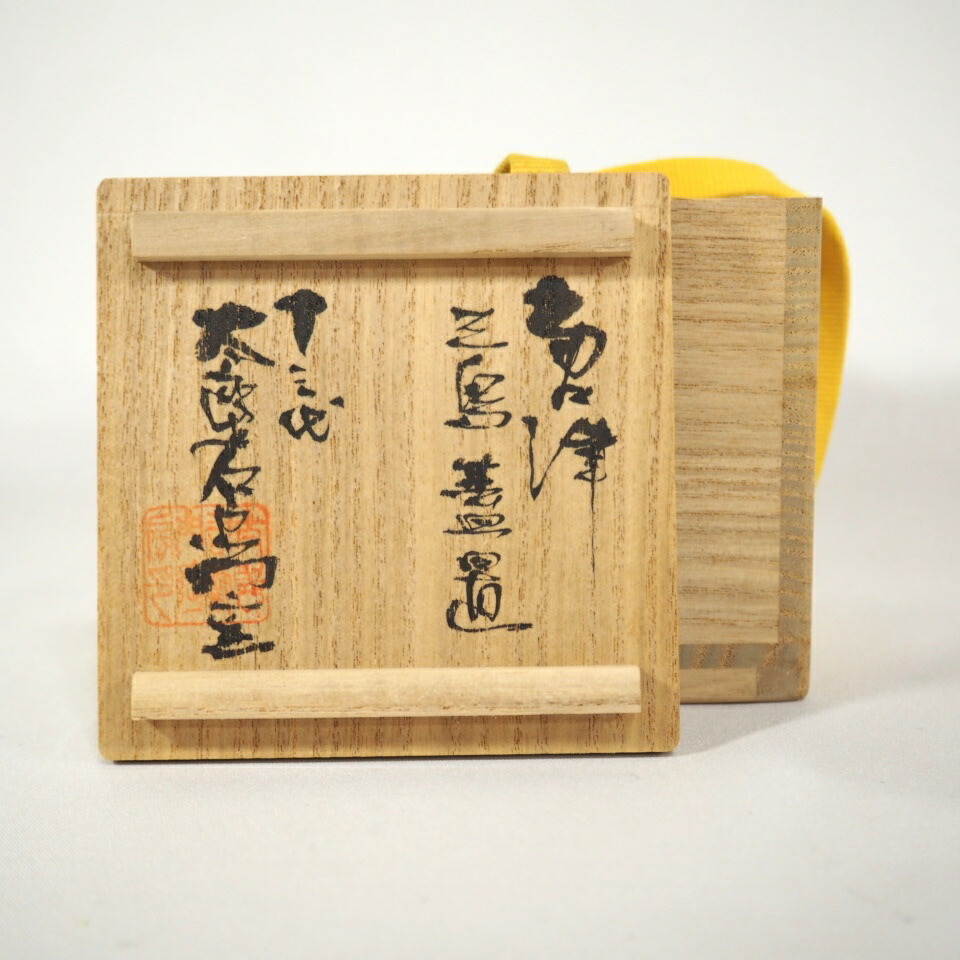 唐津
三島 蓋置
十三代
太郎右衛門